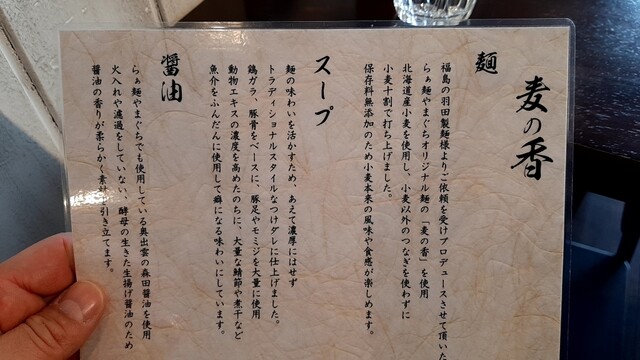 麦の香
麺
福島の羽田製麺様よりご依頼を受けプロデュースさせて頂いた
らぁ麺やまぐちオリジナル麺の「麦の香」を使用
北海道産小麦を使用し、小麦以外のつなぎを使わずに
小麦十割で打ち上げました。
保存料無添加のため小麦本来の風味や食感が楽しめます。
スープ
麺の味わいを活かすため、あえて濃厚にはせず
トラディショナルスタイルなつけダレに仕上げました。
鶏ガラ、豚骨をベースに、豚足やモミジを大量に使用
動物エキスの濃度を高めたのちに、大量な鯖節や煮干など
魚介をふんだんに使用して癖になる味わいにしています。
醤油
らぁ麺やまぐちでも使用している奥出雲の森田醤油を使用
火入れや濾過をしていない、酵母の生きた生揚げ醤油のため
醤油の香りが柔らかく素材を引き立てます。